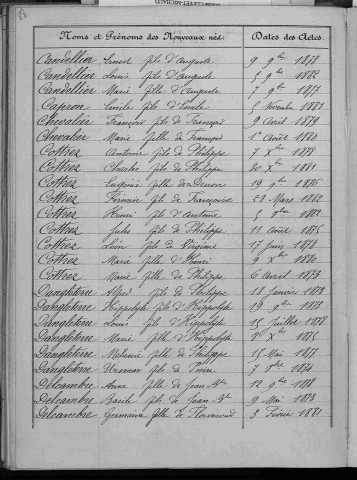 Noms et Prénoms des Nouveaux nés. Dates des Actes.
Candellier Ernest fils d'Auguste 9 9bre 1878
Candellier Louis fils d'Auguste 5 9bre 1882
Candellier Marie fille d'Auguste 7 9bre 1875
Capron Emile fils d'Emile 5 Novembre 1881
Chevalier François fils de François 9 Avril 1879
Chevalier Marie fille de François 1er Août 1880
Cottrez Antoine fils de Philippe 7 Xbre 1878
Cottrez Charles fils de Philippe 20 Xbre 1881
Cottrez Eugénie fille de 19 9bre
Cottrez Firmin fils de Françoise 28 Mars 1882
Cottrez Henri fils d'Antoine 5 1882
Cottrez Jules fils de Philippe 11 Août 1875
Cottrez Léon fils de Virginie 17 Juin 1878
Cottrez Marie fille d'Henri 9 Xbre 1880
Cottrez Marie fille de Philippe 6 Avril 1873
Dangleterre Alfred fils de Philippe 18 Janvier 1873
Dangleterre Hippolyte fils d'Hippolyte 19 9bre 1873
Dangleterre Louis fils d'Hippolyte 15 Juillet 1878
Dangleterre Marie fille d'Hippolyte 8 Xbre 1875
Dangleterre fille de Philippe 15 Mai 1877
Dangleterre fils de 7 1874
Delcambre Anne fille de Jean Bte 12 9bre
Delcambre Basile fils de Jean Bte 9 Mai 1873
Delcambre Germaine fille de Florimond 3 Février 1881